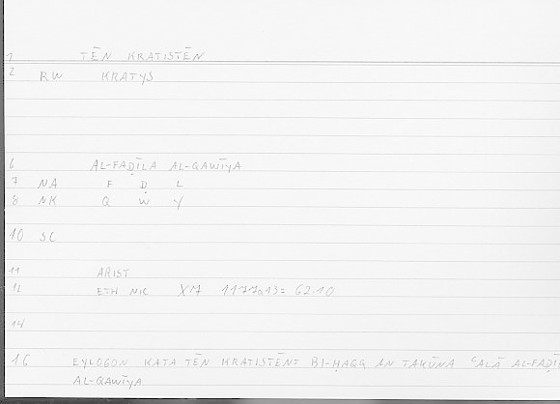 1 TĒN KRATISTĒN
2 RW KRATYS
6 AL-FAḌĪLA AL-QAWĪYA
7 NA F Ḍ L
8 NK Q W Y
10 SC
11 ARIST
12 ETH NIC X 7 1177a13= 62.10
14
16 EYLOGON KATA TĒN KRATISTĒN= BI-ḤAQQ AN TAKŪNA ʿALĀ
AL-QAWĪYA